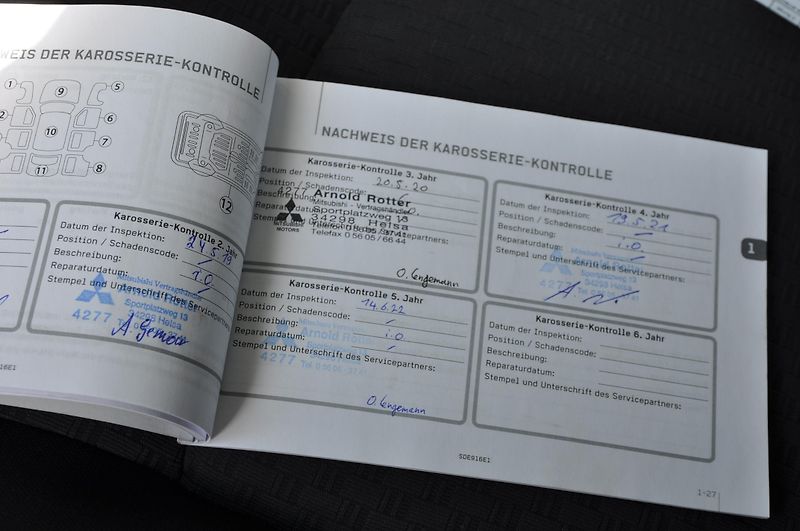 WEIS DER KAROSSERIE-KONTROLLE
1
9
5
2
6
10
7
11
8
12
Karosserie-Kontrolle 2. Jahr
Datum der Inspektion: 24.5.19
Position / Schadenscode:
Beschreibung: i.o
Reparaturdatum:
Stempel und Unterschrift des Servicepartners:
Mitsubishi Vertragshändler
Arnold Rotter
Sportplatzweg 13
34298 Helsa
4277
NACHWEIS DER KAROSSERIE-KONTROLLE
Karosserie-Kontrolle 3. Jahr
Datum der Inspektion: 20.5.20
Position / Schadenscode:
Beschreibung:
Reparaturdatum:
Stempel und Unterschrift des Servicepartners:
4277
Arnold Rotter
Mitsubishi - Vertragshändler
Sportplatzweg 13
34298 Helsa
Telefon 0 56 05 / 37 41
Telefax 0 56 05 / 66 44
MITSUBISHI
MOTORS
O. Lengemann
Karosserie-Kontrolle 4. Jahr
Datum der Inspektion: 19.5.21
Position / Schadenscode:
Beschreibung: i.o.
Reparaturdatum:
Stempel und Unterschrift des Servicepartners:
Karosserie-Kontrolle 5. Jahr
Datum der Inspektion: 14.6.22
Position / Schadenscode:
Beschreibung: i.o
Reparaturdatum:
Stempel und Unterschrift des Servicepartners:
Arnold Rotter
Sportplatzweg 13
4277 Tel. 0 56 05 - 37 41
O. Lengemann
Karosserie-Kontrolle 6. Jahr
Datum der Inspektion:
Position / Schadenscode:
Beschreibung:
Reparaturdatum:
Stempel und Unterschrift des Servicepartners:
1
SDE916E1
1-27